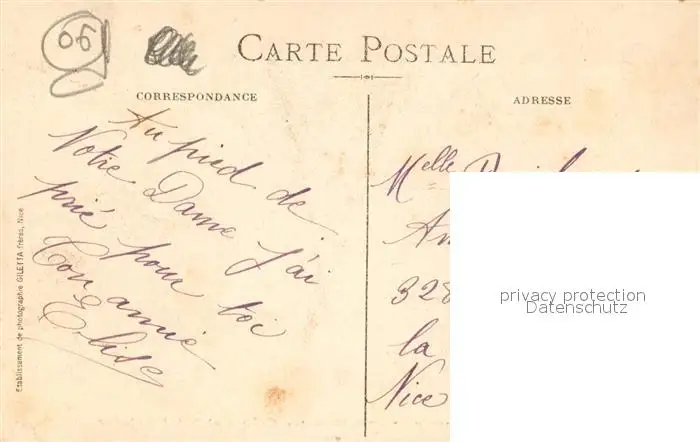 06
CARTE POSTALE
CORRESPONDANCE
ADRESSE
Au pied de
Notre Dame j'ai
prié pour toi
Ton amie
Elise
Melle
328
la
Nice
privacy protection
Datenschutz
Etablissement de photographie GILETTA frères, Nice